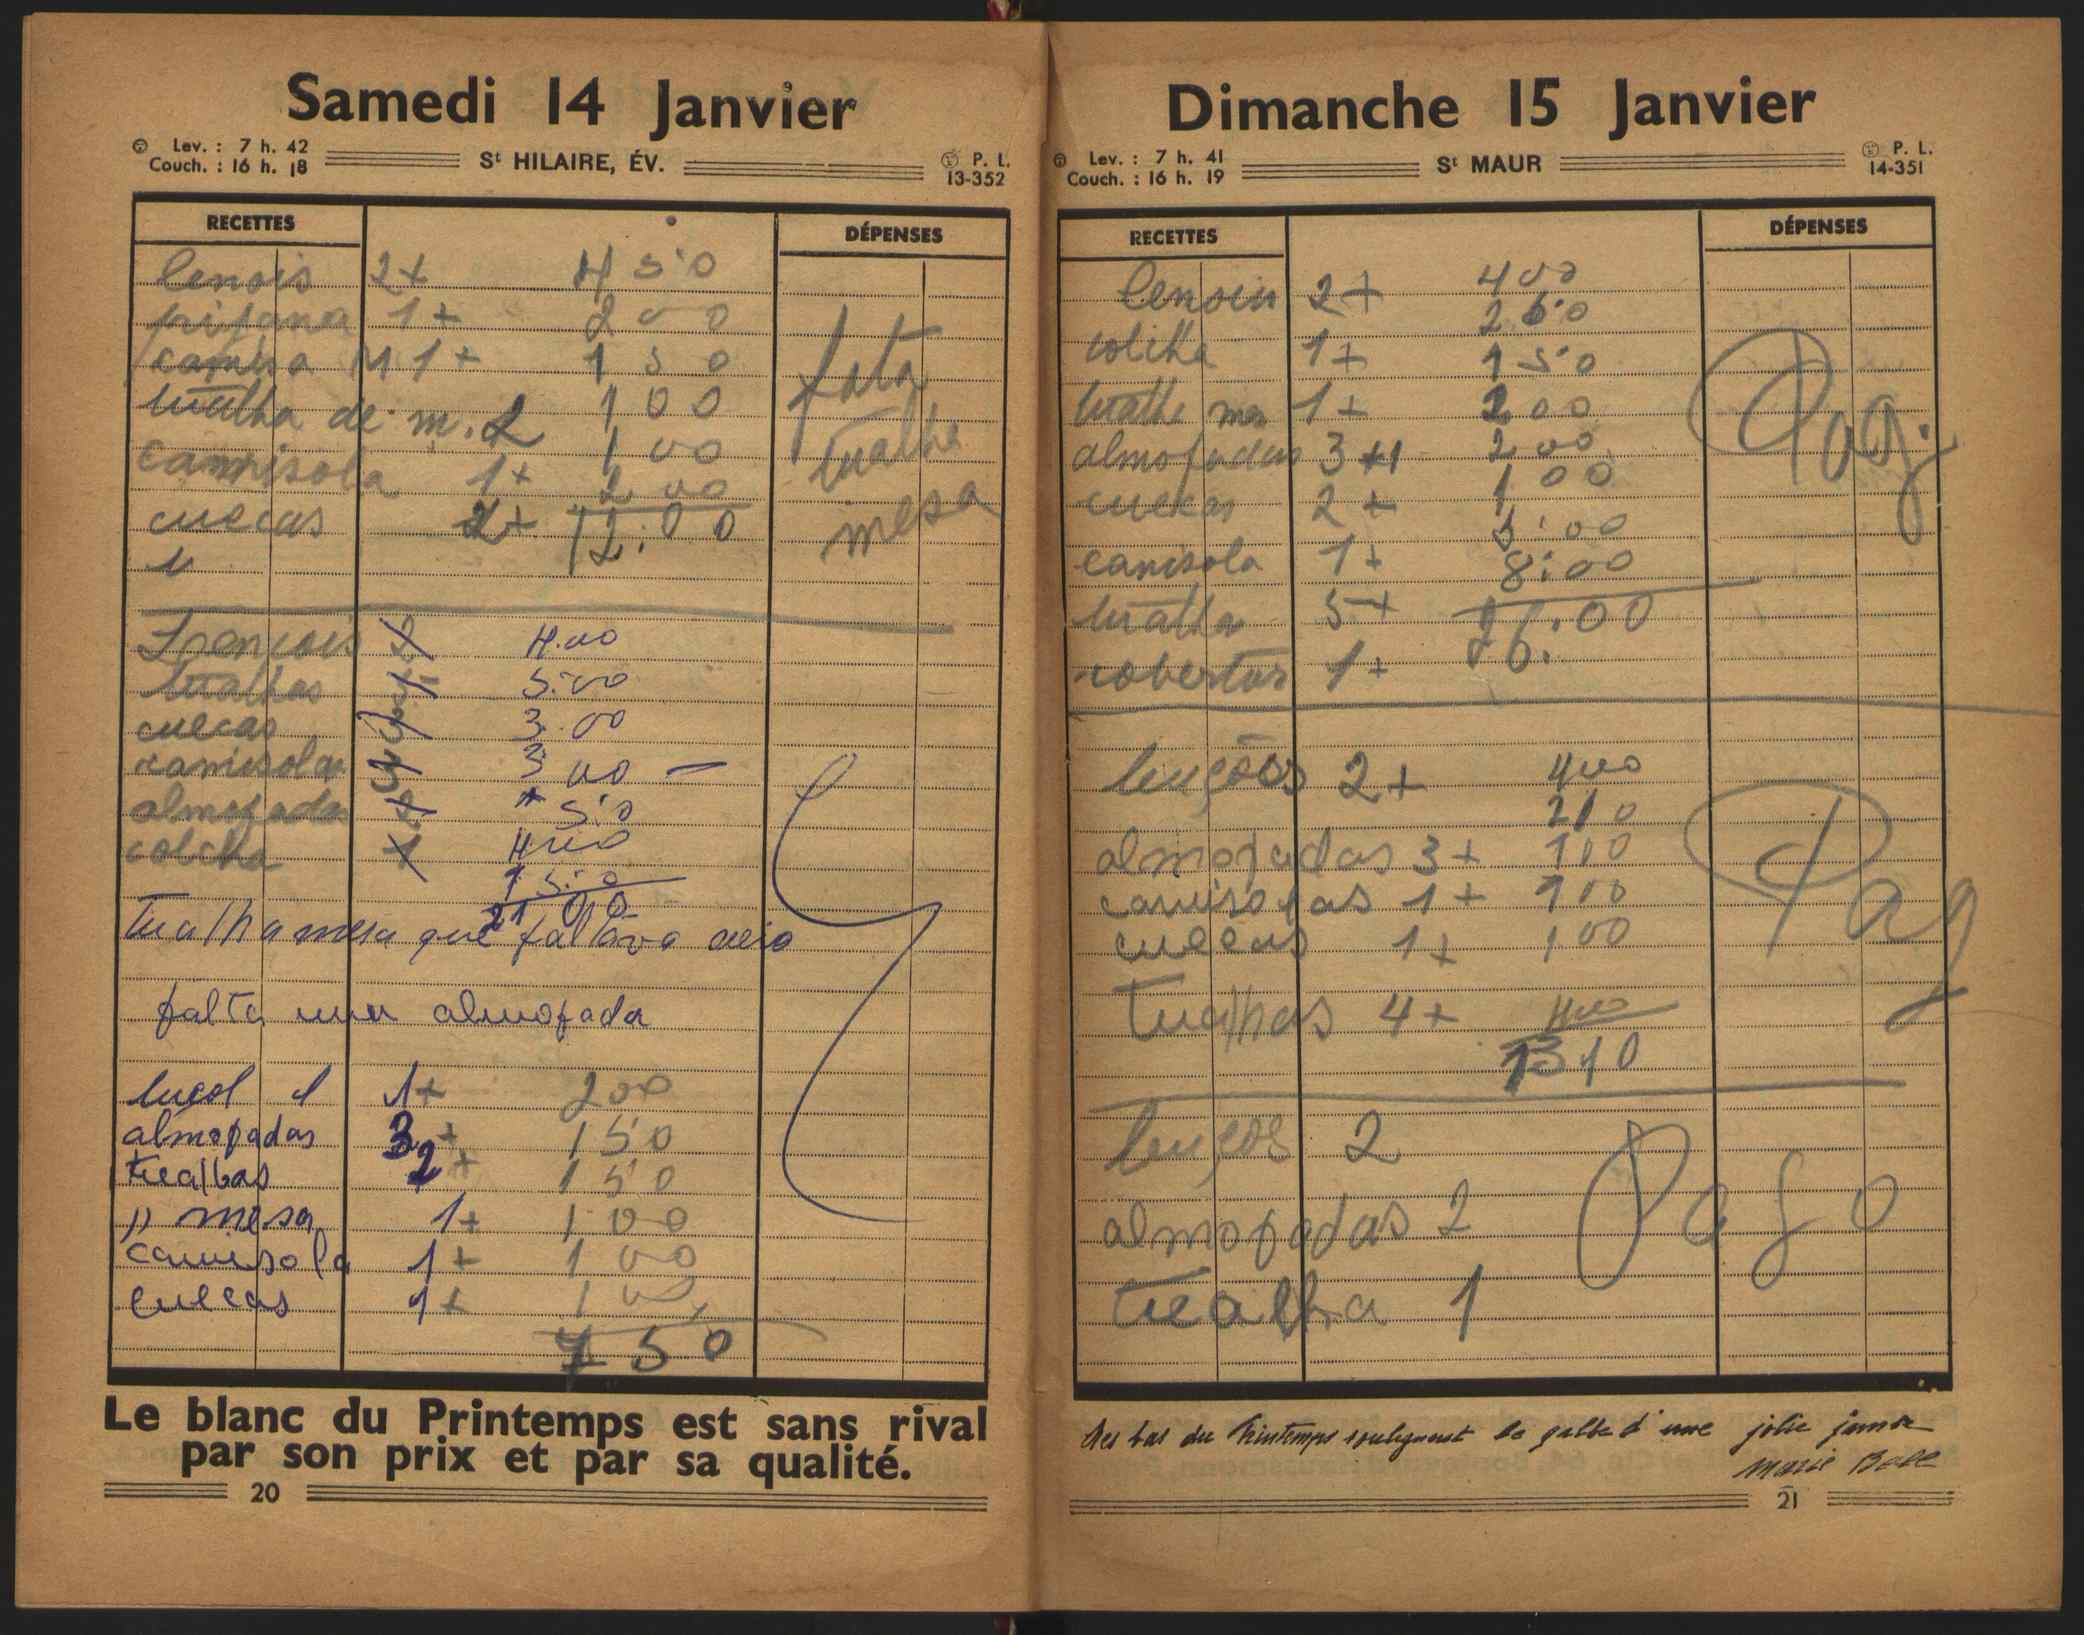 Samedi 14 Janvier
Lev. : 7 h. 42
Couch. : 16 h. 18
St HILAIRE, ÉV.
P. L.
13-352
RECETTES
DÉPENSES
lençois 2+ 4 50
pijama 1+ 200
camisa 1+ 150
tualha de m. 2 100
camisola 1+ 100
cuecas 2+ 200
12.00
tualha
mesa
lençois 2 4.00
tualhas 5.00
cuecas 3.00
camisolas 3 00
almofada
colcha 1 400
21 00
Tualha mesa que faltava veio
falta uma almofada
luçol 1 1+ 200
almofadas 3+ 150
tualhas 2+ 150
" mesa 1+ 100
camisola 1+ 100
cuecas 1+ 100
7 50
Le blanc du Printemps est sans rival
par son prix et par sa qualité.
20
Dimanche 15 Janvier
Lev. : 7 h. 41
Couch. : 16 h. 19
St MAUR
P. L.
14-351
RECETTES
DÉPENSES
lençois 2+ 400
colcha 1+ 250
150
tualha mesa 1+ 200
almofadas 3+1 200
cuecas 2+ 100
camisola 1+ 5:00
8:00
tualha 5+ 26.00
cobertor 1+
Pag.
luções 2+ 400
210
almofadas 3+ 100
camisolas 1+ 100
cuecas 1+ 100
Tualhas 4+ 400
1310
Pag
luções 2
almofadas 2
Pago
tualha 1
Les bas du Printemps soulignent le galbe d'une jolie jambe
Marie Bell
21